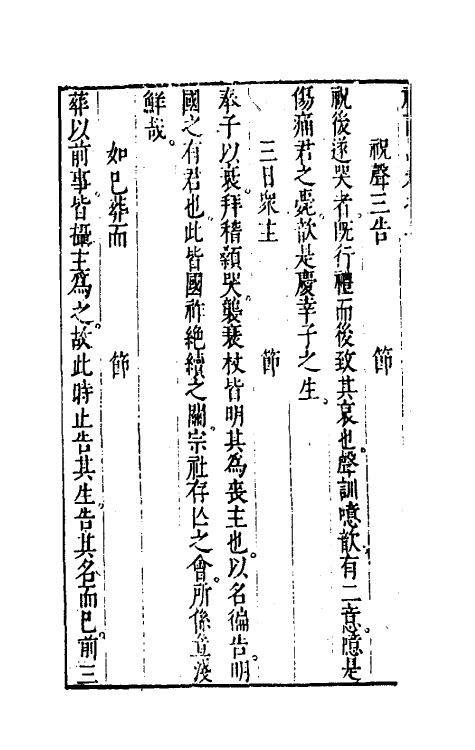 祝聲三告　節
祝後遂哭者旣行禮而後致其哀也聲訓噫歆有二意噫是
傷痛君之薨歆是慶幸子之生
三日衆主　節
奉子以衰拜稽顙哭襲衰杖皆明其為喪主也以名徧告明
國之有君也此皆國祚絶續之關宗社存亾之會所係豈淺
鮮哉
如已葬而　節
葬以前事皆攝主為之故此時止告其生告其名而已前三